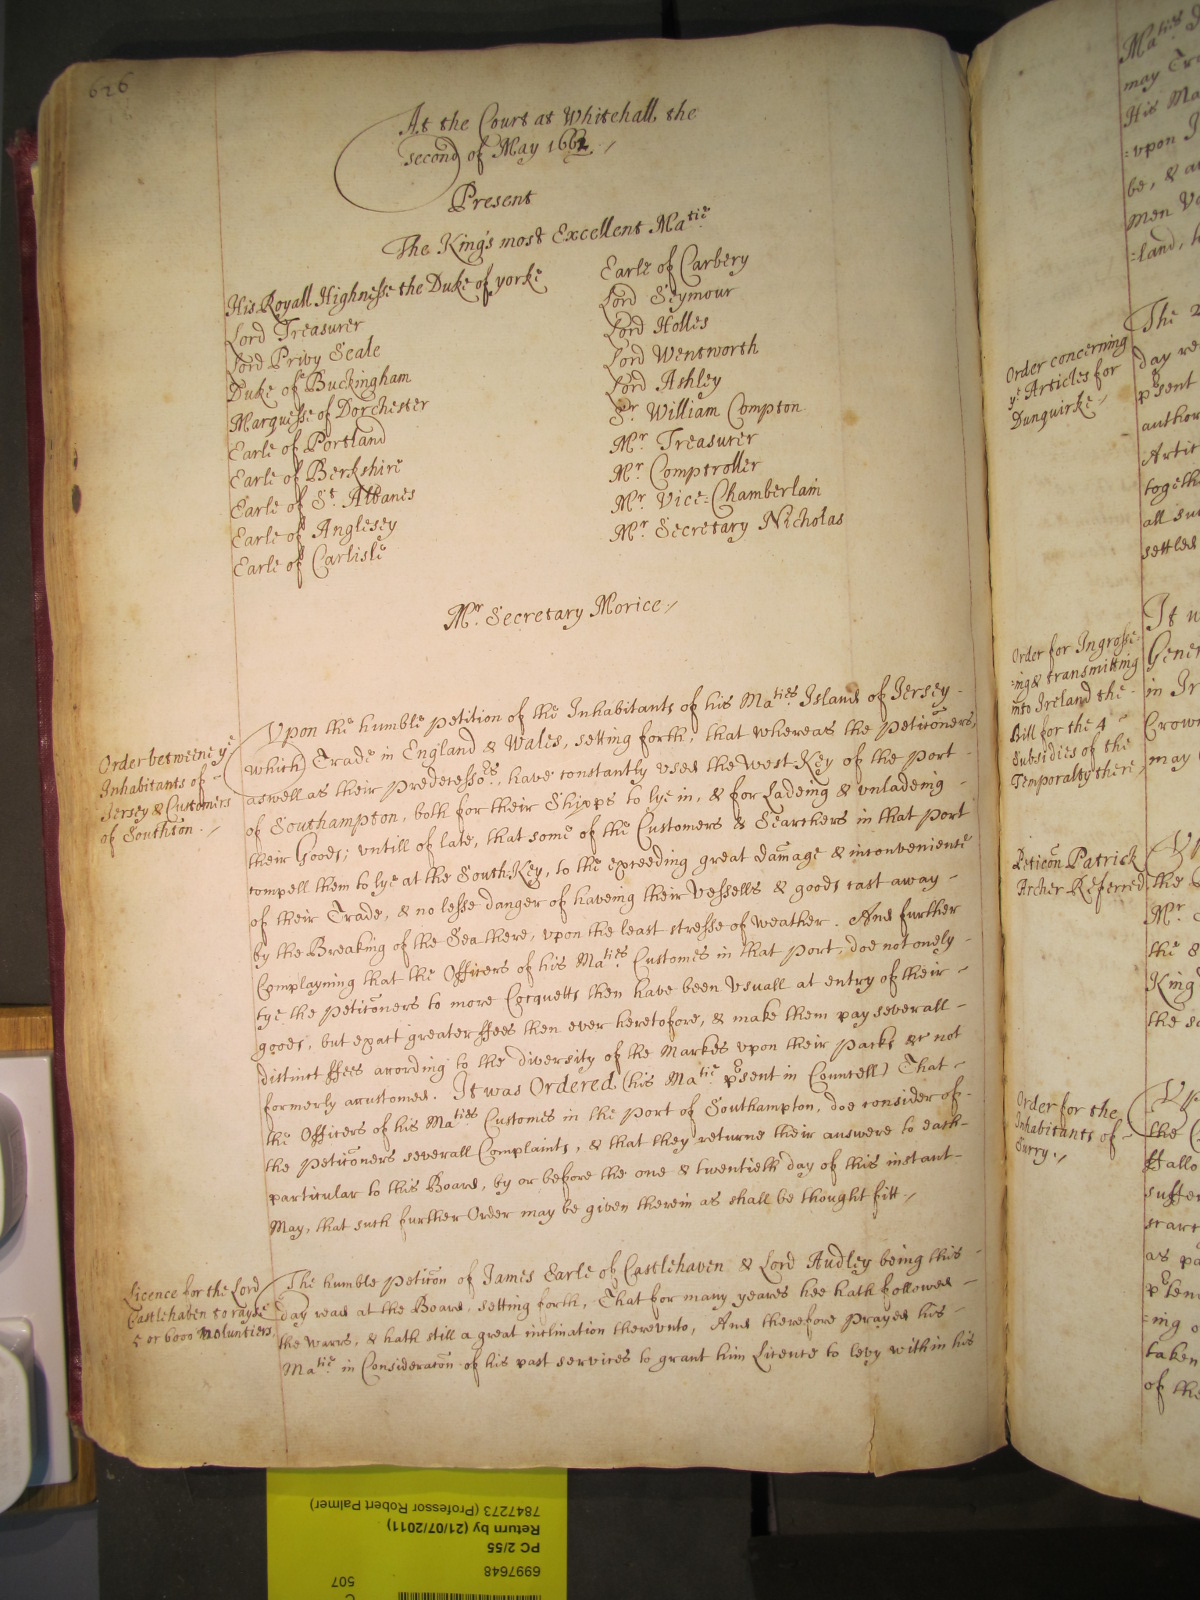 626
At the Court at Whitehall, the
second of May 1662 /
Present
The King's most Excellent Matie
His Royall Highnesse the Duke of yorke
Lord Treasurer
Lord Privy Seale
Duke of Buckingham
Marquesse of Dorchester
Earle of Portland
Earle of Berkshire
Earle of St. Albanes
Earle of Anglesey
Earle of Carlisle
Earle of Carbery
Lord Seymour
Lord Holles
Lord Wentworth
Lord Ashley
Sr. William Compton
Mr. Treasurer
Mr. Comptroller
Mr. Vice=Chamberlain
Mr. Secretary Nicholas
Mr. Secretary Morice /
Order betweene ye
Inhabitants of
Jersey & Customers
of Southton. /
Upon the humble petition of the Inhabitants of his Maties Island of Jersey
which Trade in England & Wales, setting forth, that whereas the peticoners,
aswell as their Predecessors, have constantly used the West Key of the Port
of Southampton, both for their Shipps to lye in, & for Ladeing & unladeing
their Goods; untill of late, that some of the Customers & Searchers in that Port
compell them to lye at the South Key, to the exceeding great damage & inconvenience
of their Trade, & no lesse danger of haveing their Vessells & goods cast away
by the Breaking of the Sea there, upon the least stresse of weather. And further
Complayning that the Officers of his Maties Customes in that Port, doe not onely
tye the Peticoners to more Cocquetts then have been usuall at entry of their
goods, but exact greater ffees then ever heretofore, & make them pay severall
distinct ffees according to the diversity of the Markes upon their Packs &c not
formerly accustomed. It was Ordered (his Matie psent in Councell) That
the Officers of his Maties Customes in the Port of Southampton, doe consider of
the Peticoners severall Complaints, & that they returne their answere to each
particular to this Board, by or before the one & twentieth day of this instant
May, that such further Order may be given therein as shall be thought fitt /
Licence for the Lord
Castlehaven to rayse
5 or 6000 Voluntiers.
The humble Peticon of James Earle of Castlehaven & Lord Audley being this
day read at the Board, setting forth, That for many yeares hee hath followed
the warrs, & hath still a great inclination thereunto, And therefore prayed his
Matie in Consideracon of his past services to grant him Licence to levy within his
Maties
may Tra
His Ma
=upon I
be, & a
men Vo
=land, h
Order concerning
ye Articles for
Dunquirke /
The 2
day re
psent
author
Artic
togeth
all su
settled
Order for Ingrosse-
=ing & transmitting
into Ireland the
Bill for the 4
Subsidies of the
Temporalty there /
It w
Gener
in Ir
Crow
may
Peticon Patrick
Archer Referred
Up
the
Mr.
the S
King
the sa
Order for the
Inhabitants of
Surry. /
Up
the C
Hallo
suffer
scarc
as pa
ptend
=ing o
taken
of the
7847273 (Professor Robert Palmer)
Return by (21/07/2011)
PC 2/55
6997648
507